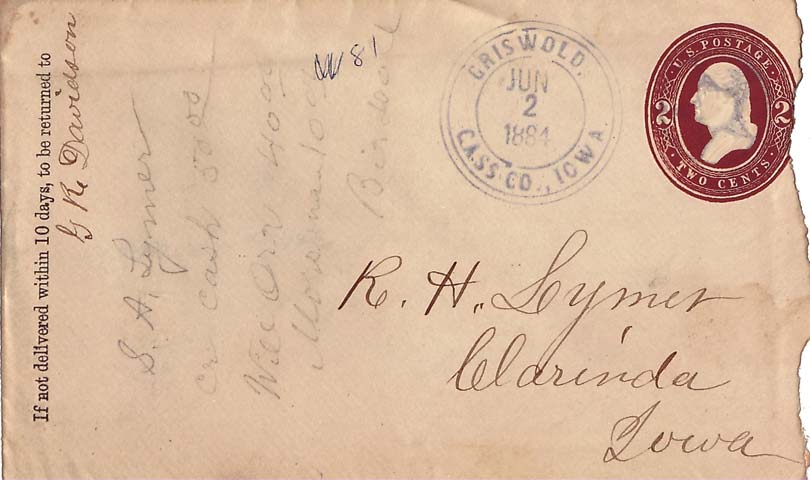 If not delivered within 10 days, to be returned to
G R Davidson
S. A. Lymer
cr cash 50 00
Will Orr 40
81
GRISWOLD.
JUN
2
1884
CASS CO., IOWA
U.S. POSTAGE
2 2
TWO CENTS
R. H. Lymer
Clarinda
Iowa